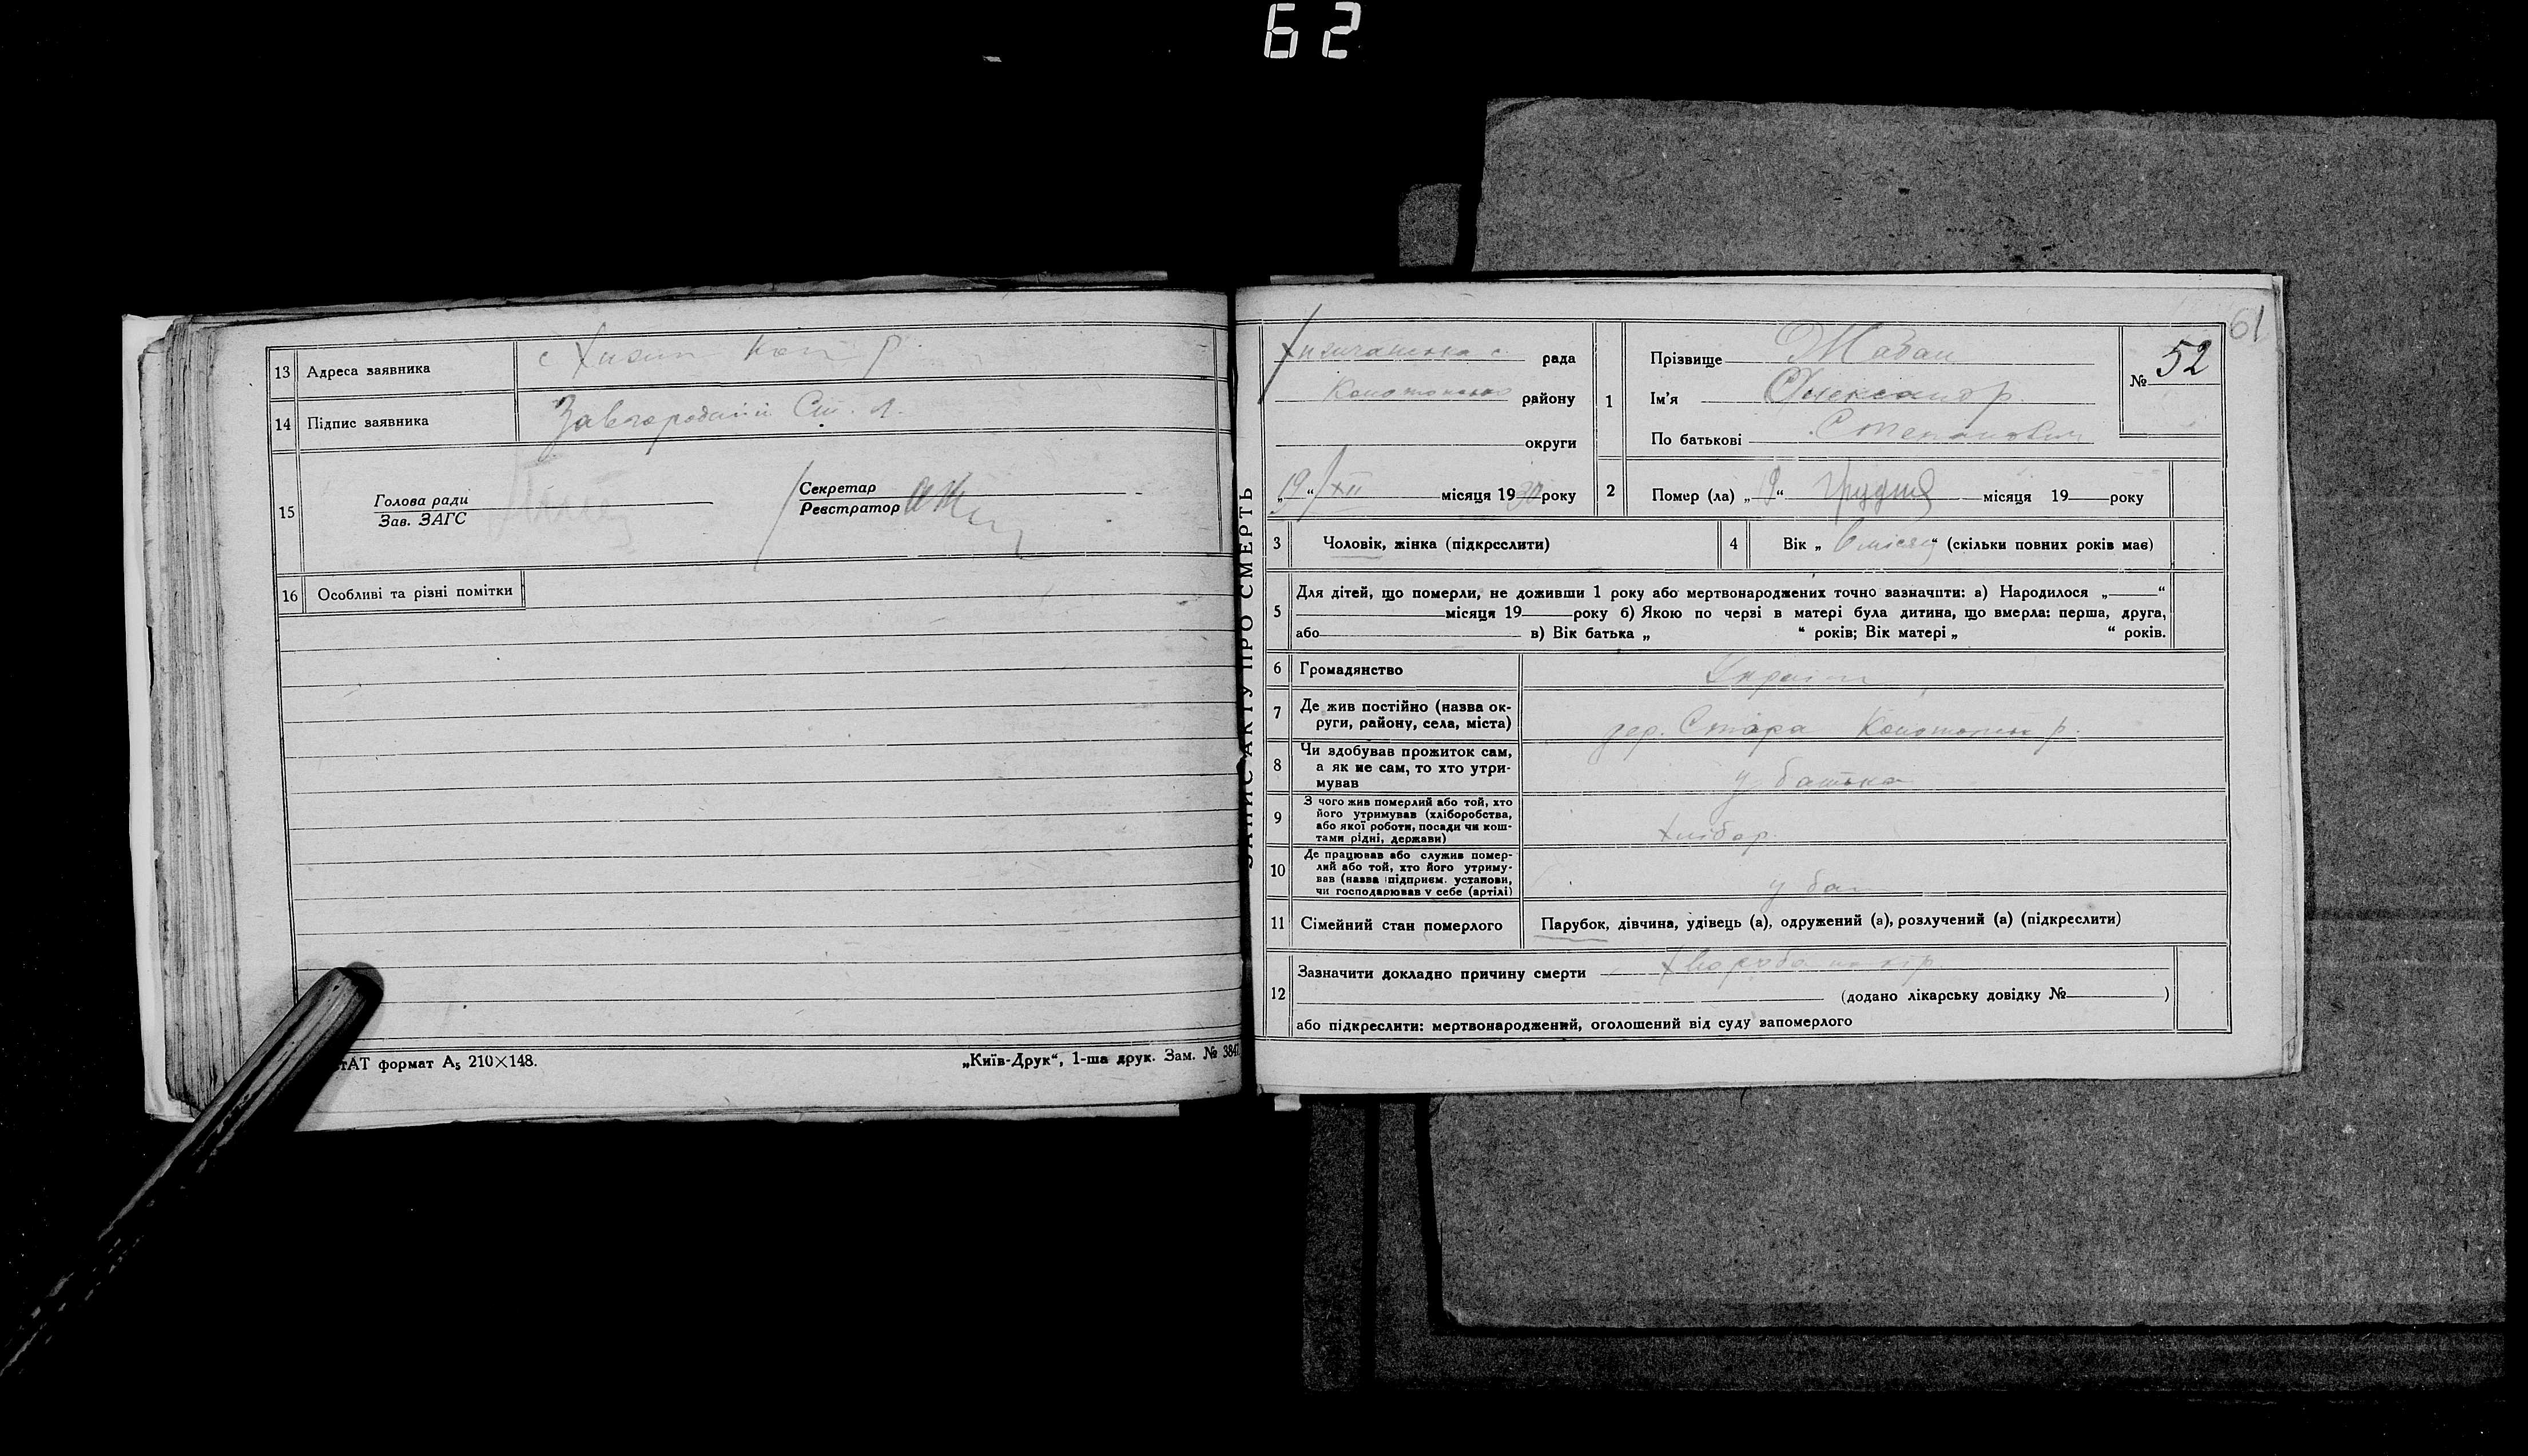 62
13 Адреса заявника с Хижки Кон р.
14 Підпис заявника Завгородній Ст. Л.
15 Голова ради
Зав. ЗАГС
Секретар
Реєстратор
16 Особливі та різні помітки
формат А5 210×148.
„Київ-Друк“, 1-ша друк. Зам. № 3847
ЗАПИС АКТУ ПРО СМЕРТЬ
61
рада
району
округи
„19“ XII місяця 1930 року
№ 52
1 Прізвище Жабан
Ім'я Олександр
По батькові Степанович
2 Помер (ла) „9“ грудня місяця 19 року
3 Чоловік, жінка (підкреслити)
4 Вік „6 місяц“ (скільки повних років має)
5 Для дітей, що померли, не доживши 1 року або мертвонароджених точно зазначити: а) Народилося „ “
місяця 19 року б) Якою по черві в матері була дитина, що вмерла: перша, друга,
або в) Вік батька „ “ років; Вік матері „ “ років.
6 Громадянство Україн
7 Де жив постійно (назва ок-
руги, району, села, міста)
дер. Стара Конотопськ р.
8 Чи здобував прожиток сам,
а як не сам, то хто утри-
мував
у батька
9 З чого жив померлий або той, хто
його утримував (хліборобства,
або якої роботи, посади чи кош-
тами рідні, держави)
хлібор.
10 Де працював або служив помер-
лий або той, хто його утриму-
вав (назва підприєм. установи,
чи господарював у себе (артілі)
у бат
11 Сімейний стан померлого Парубок, дівчина, удівець (а), одружений (а), розлучений (а) (підкреслити)
12 Зазначити докладно причину смерти хвороба на кір
(додано лікарську довідку № )
або підкреслити: мертвонароджений, оголошений від суду запомерлого